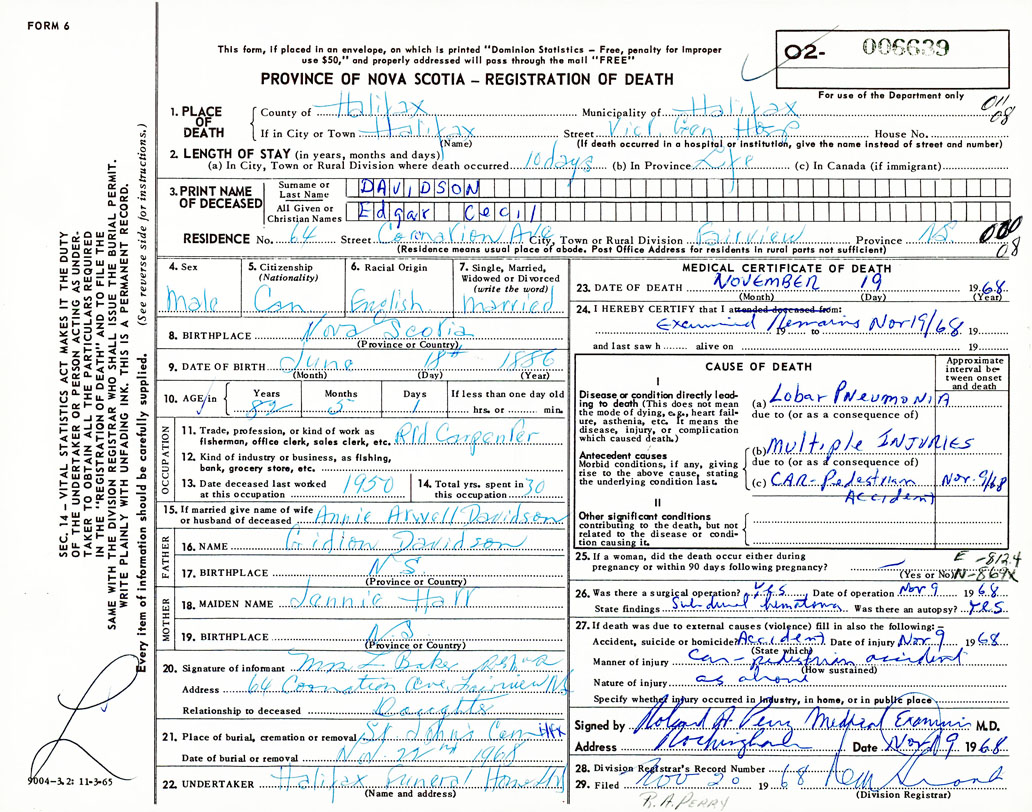 FORM 6
This form, if placed in an envelope, on which is printed "Dominion Statistics – Free, penalty for improper
use $50," and properly addressed will pass through the mail "FREE"
PROVINCE OF NOVA SCOTIA – REGISTRATION OF DEATH
O2- 006639
For use of the Department only
011
08
1. PLACE OF DEATH
County of Halifax Municipality of Halifax
If in City or Town Halifax Street Vict. Gen Hosp House No.
(Name) (If death occurred in a hospital or institution, give the name instead of street and number)
2. LENGTH OF STAY (in years, months and days)
(a) In City, Town or Rural Division where death occurred 10 days (b) In Province Life (c) In Canada (if immigrant)
3. PRINT NAME OF DECEASED
Surname or Last Name DAVIDSON
All Given or Christian Names Edgar Cecil
RESIDENCE No. 64 Street Coronation Ave City, Town or Rural Division Fairview Province NS
(Residence means usual place of abode. Post Office Address for residents in rural parts not sufficient)
000
08
4. Sex Male
5. Citizenship (Nationality) Can
6. Racial Origin English
7. Single, Married, Widowed or Divorced (write the word) married
8. BIRTHPLACE Nova Scotia
(Province or Country)
9. DATE OF BIRTH June 18th 1886
(Month) (Day) (Year)
10. AGE in Years 82 Months 5 Days 1 If less than one day old hrs. or min.
OCCUPATION
11. Trade, profession, or kind of work as fisherman, office clerk, sales clerk, etc. Rtd Carpenter
12. Kind of industry or business, as fishing, bank, grocery store, etc.
13. Date deceased last worked at this occupation 1950
14. Total yrs. spent in this occupation 30
15. If married give name of wife or husband of deceased Annie Davidson
FATHER
16. NAME Gidion Davidson
17. BIRTHPLACE N.S.
(Province or Country)
MOTHER
18. MAIDEN NAME Jannie
19. BIRTHPLACE N.S
(Province or Country)
20. Signature of informant Mrs
Address 64 Coronation Ave, Fairview NS
Relationship to deceased
21. Place of burial, cremation or removal St John's Cem Hfx
Date of burial or removal Nov 22nd 1968
22. UNDERTAKER Halifax Funeral Home
(Name and address)
MEDICAL CERTIFICATE OF DEATH
23. DATE OF DEATH NOVEMBER 19 1968
(Month) (Day) (Year)
24. I HEREBY CERTIFY that I attended deceased from:
Examined Remains Nov 19/68 19
to 19
and last saw h alive on 19
CAUSE OF DEATH
Approximate interval between onset and death
I
Disease or condition directly leading to death (This does not mean the mode of dying, e.g., heart failure, asthenia, etc. It means the disease, injury, or complication which caused death.)
(a) Lobar PNEUMONIA
due to (or as a consequence of)
Antecedent causes
Morbid conditions, if any, giving rise to the above cause, stating the underlying condition last.
(b) multiple INJURIES
due to (or as a consequence of)
(c) CAR-Pedestrian ACCIDENT Nov. 9/68
II
Other significant conditions contributing to the death, but not related to the disease or condition causing it.
25. If a woman, did the death occur either during
pregnancy or within 90 days following pregnancy?
(Yes or No)
E -812.4
N-869X
26. Was there a surgical operation? yes Date of operation Nov 9 1968
State findings Subdural hematoma Was there an autopsy? yes
27. If death was due to external causes (violence) fill in also the following: –
Accident, suicide or homicide? Accident Date of injury Nov 9 1968
(State which)
Manner of injury Car - pedestrian accident
(How sustained)
Nature of injury as above
Specify whether injury occurred in industry, in home, or in public place
Signed by Roland A. Perry Medical Examiner M.D.
Address Rockingham Date Nov 19 1968
28. Division Registrar's Record Number
29. Filed Nov 20 1968
(Division Registrar)
R. A. PERRY
SEC. 14 – VITAL STATISTICS ACT MAKES IT THE DUTY
OF THE UNDERTAKER OR PERSON ACTING AS UNDER-
TAKER TO OBTAIN ALL THE PARTICULARS REQUIRED
IN THE "REGISTRATION OF DEATH" AND TO FILE THE
SAME WITH THE DIVISION REGISTRAR WHO SHALL ISSUE THE BURIAL PERMIT.
WRITE PLAINLY WITH UNFADING INK. THIS IS A PERMANENT RECORD.
Every item of information should be carefully supplied. (See reverse side for instructions.)
9004-3.2: 11-3-65